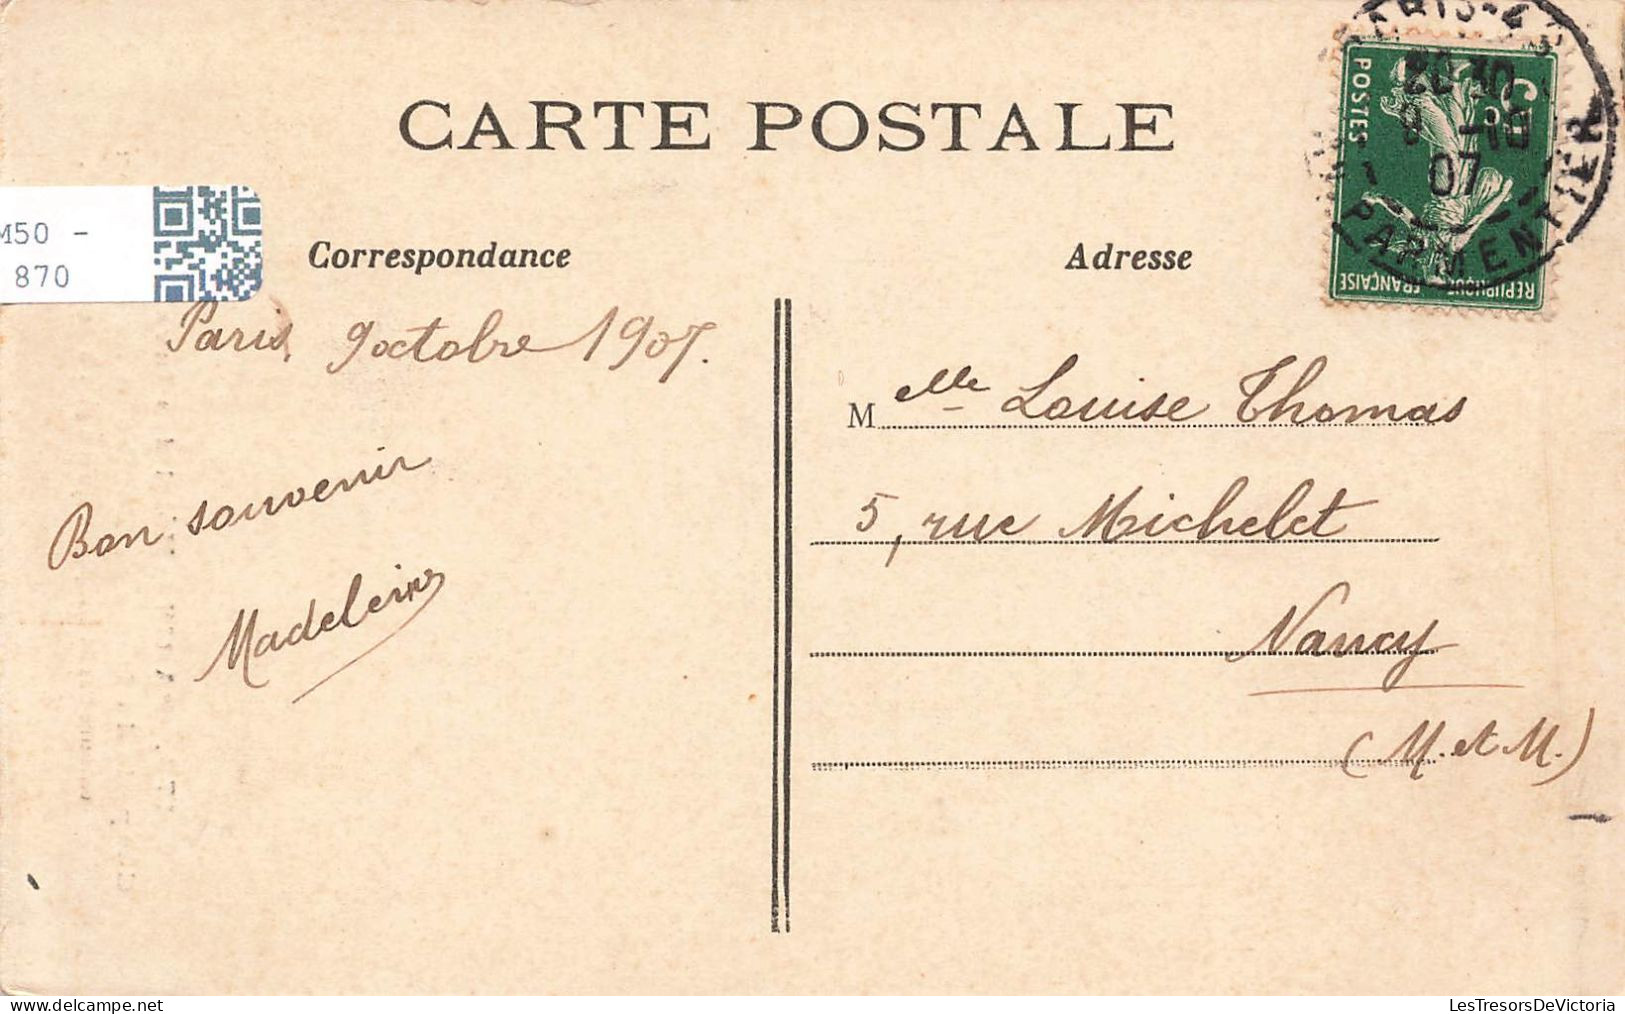 CARTE POSTALE
M50 -
870
Correspondance
Adresse
POSTES
5c
REPUBLIQUE FRANÇAISE
PARMENTIER
07
Paris, 9 octobre 1907.
Bon souvenir
Madeleine
M elle Louise Thomas
5, rue Michelet
Nancy
(M. et M.)
LesTresorsDeVictoria